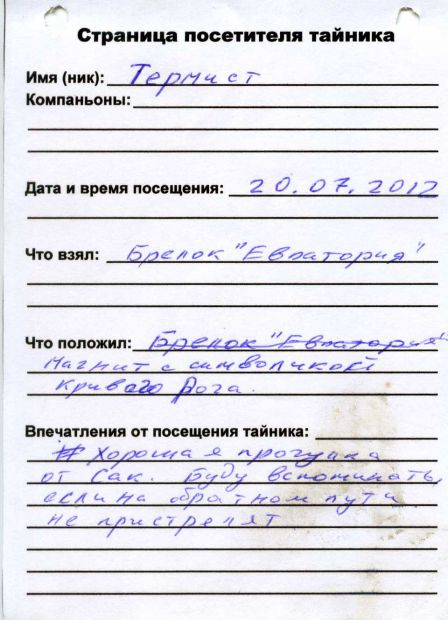 Страница посетителя тайника
Имя (ник): Термист
Компаньоны:
Дата и время посещения: 20.07.2012
Что взял: Брелок "Евпатория"
Что положил: Брелок "Евпатория"
Магнит с символикой
Кривого Рога.
Впечатления от посещения тайника:
Хорошая прогулка
от Сак. Буду вспоминать,
если на обратном пути
не пристрелят